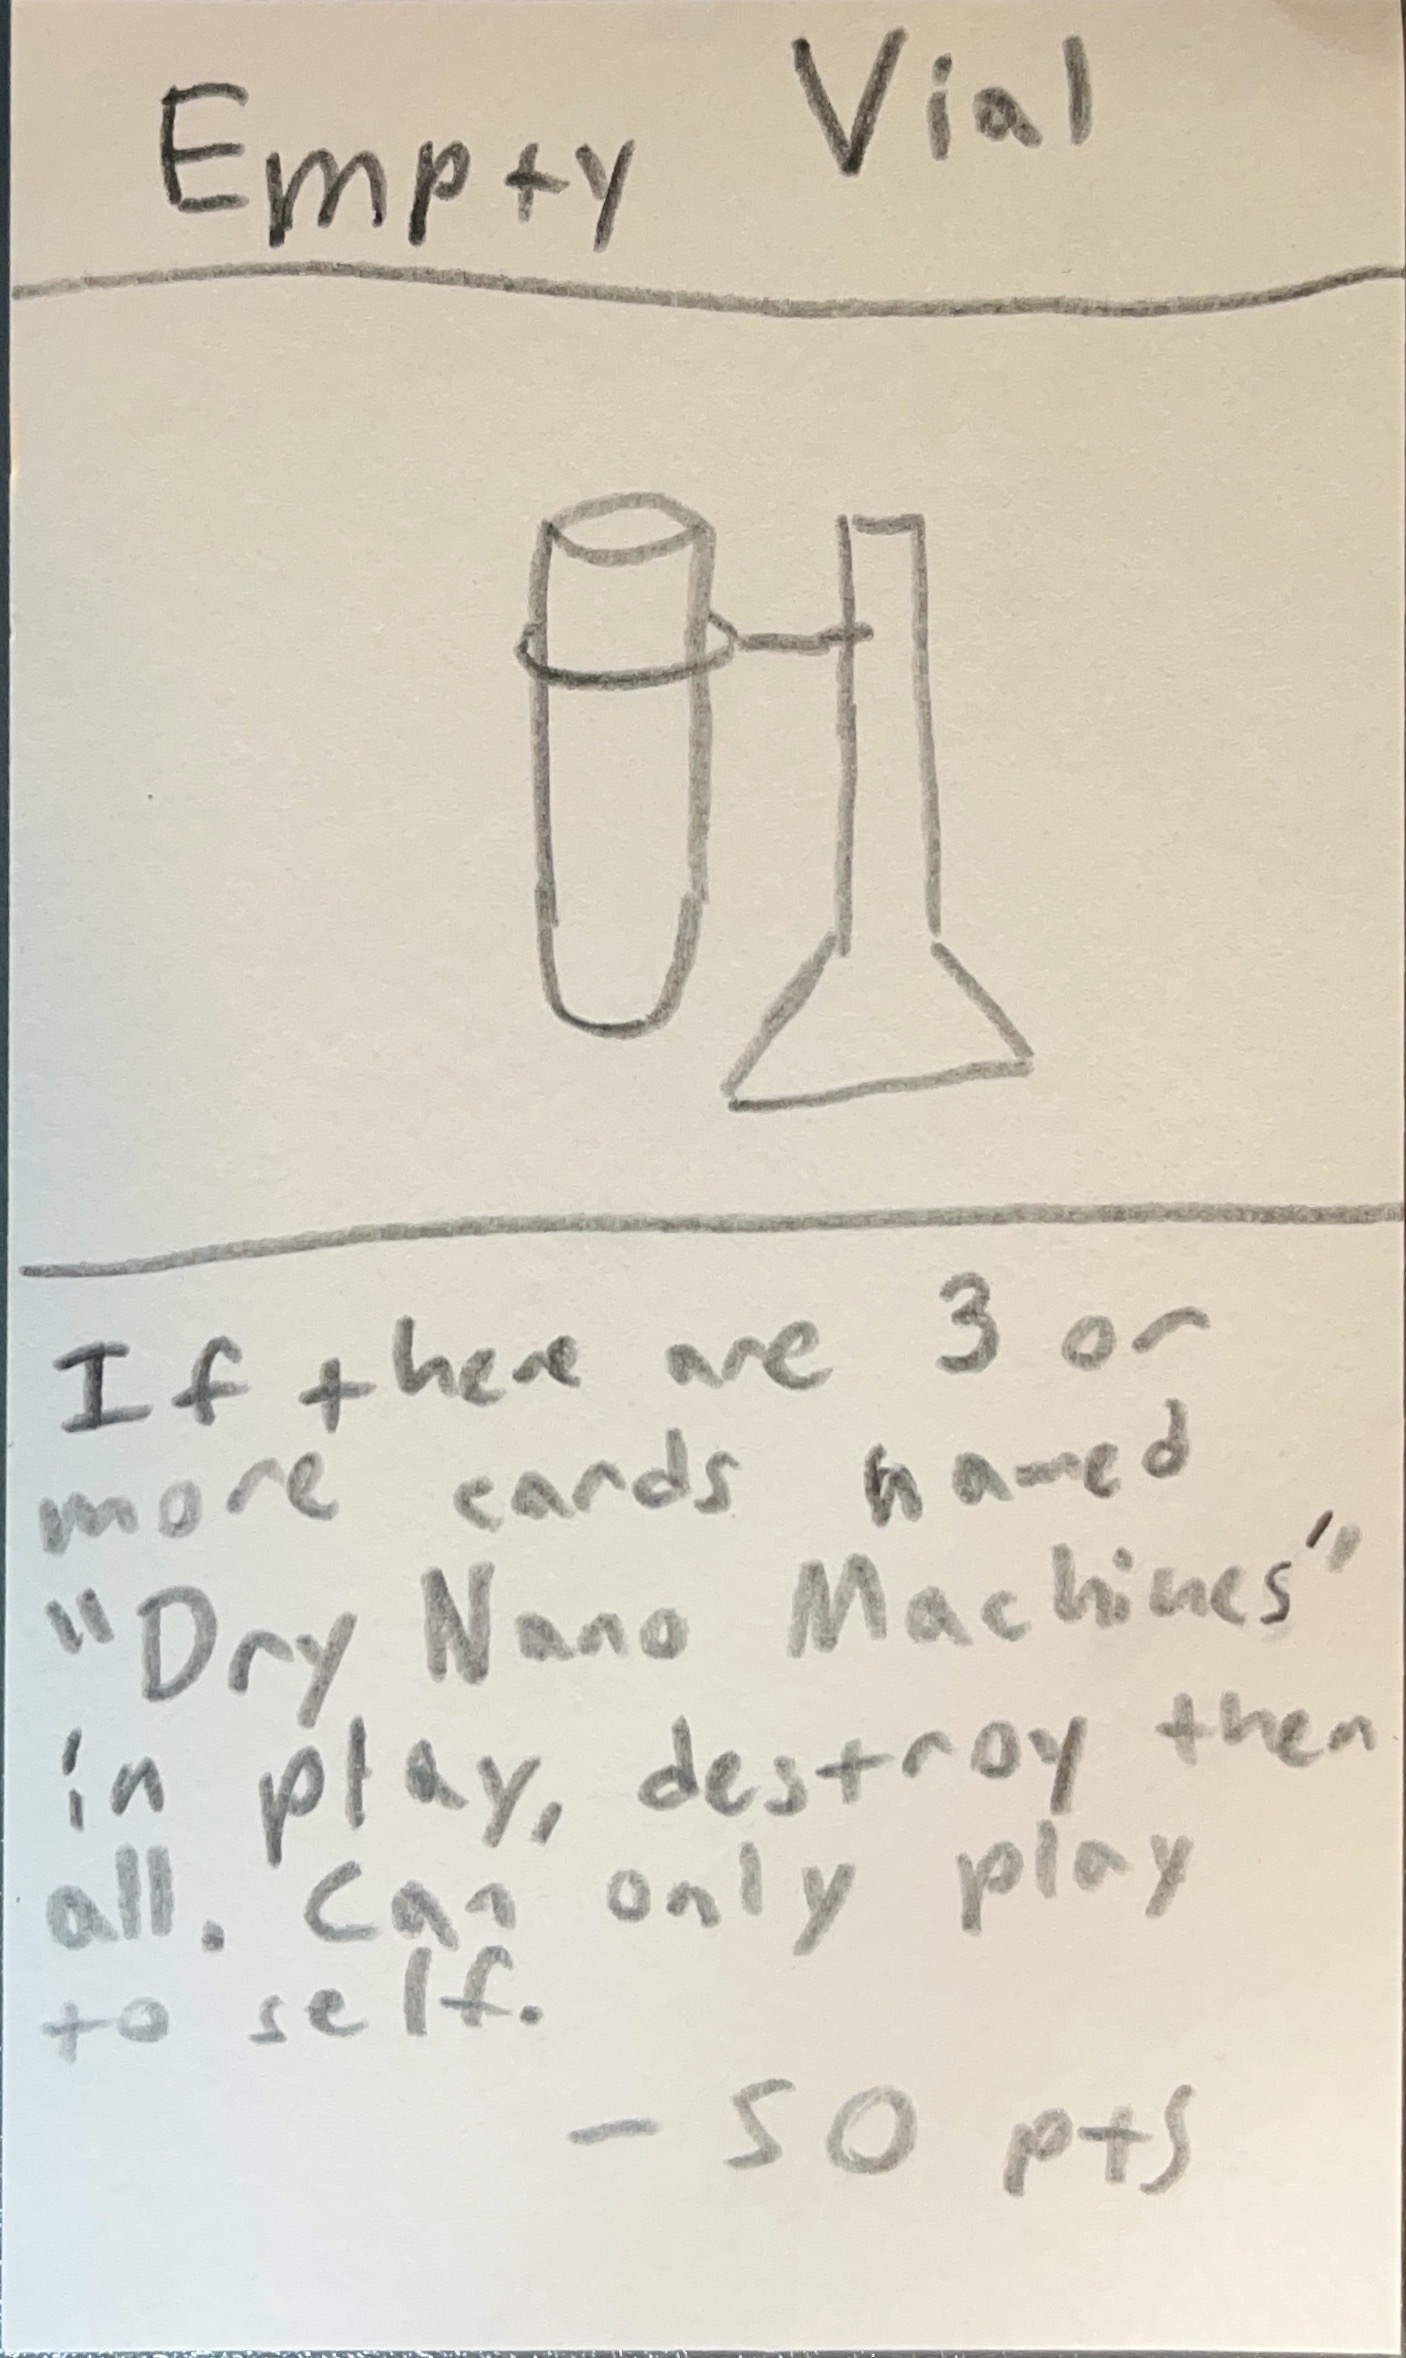 Empty Vial
If there are 3 or
more cards named
"Dry Nano Machines"
in play, destroy them
all. Can only play
to self.
- 50 pts